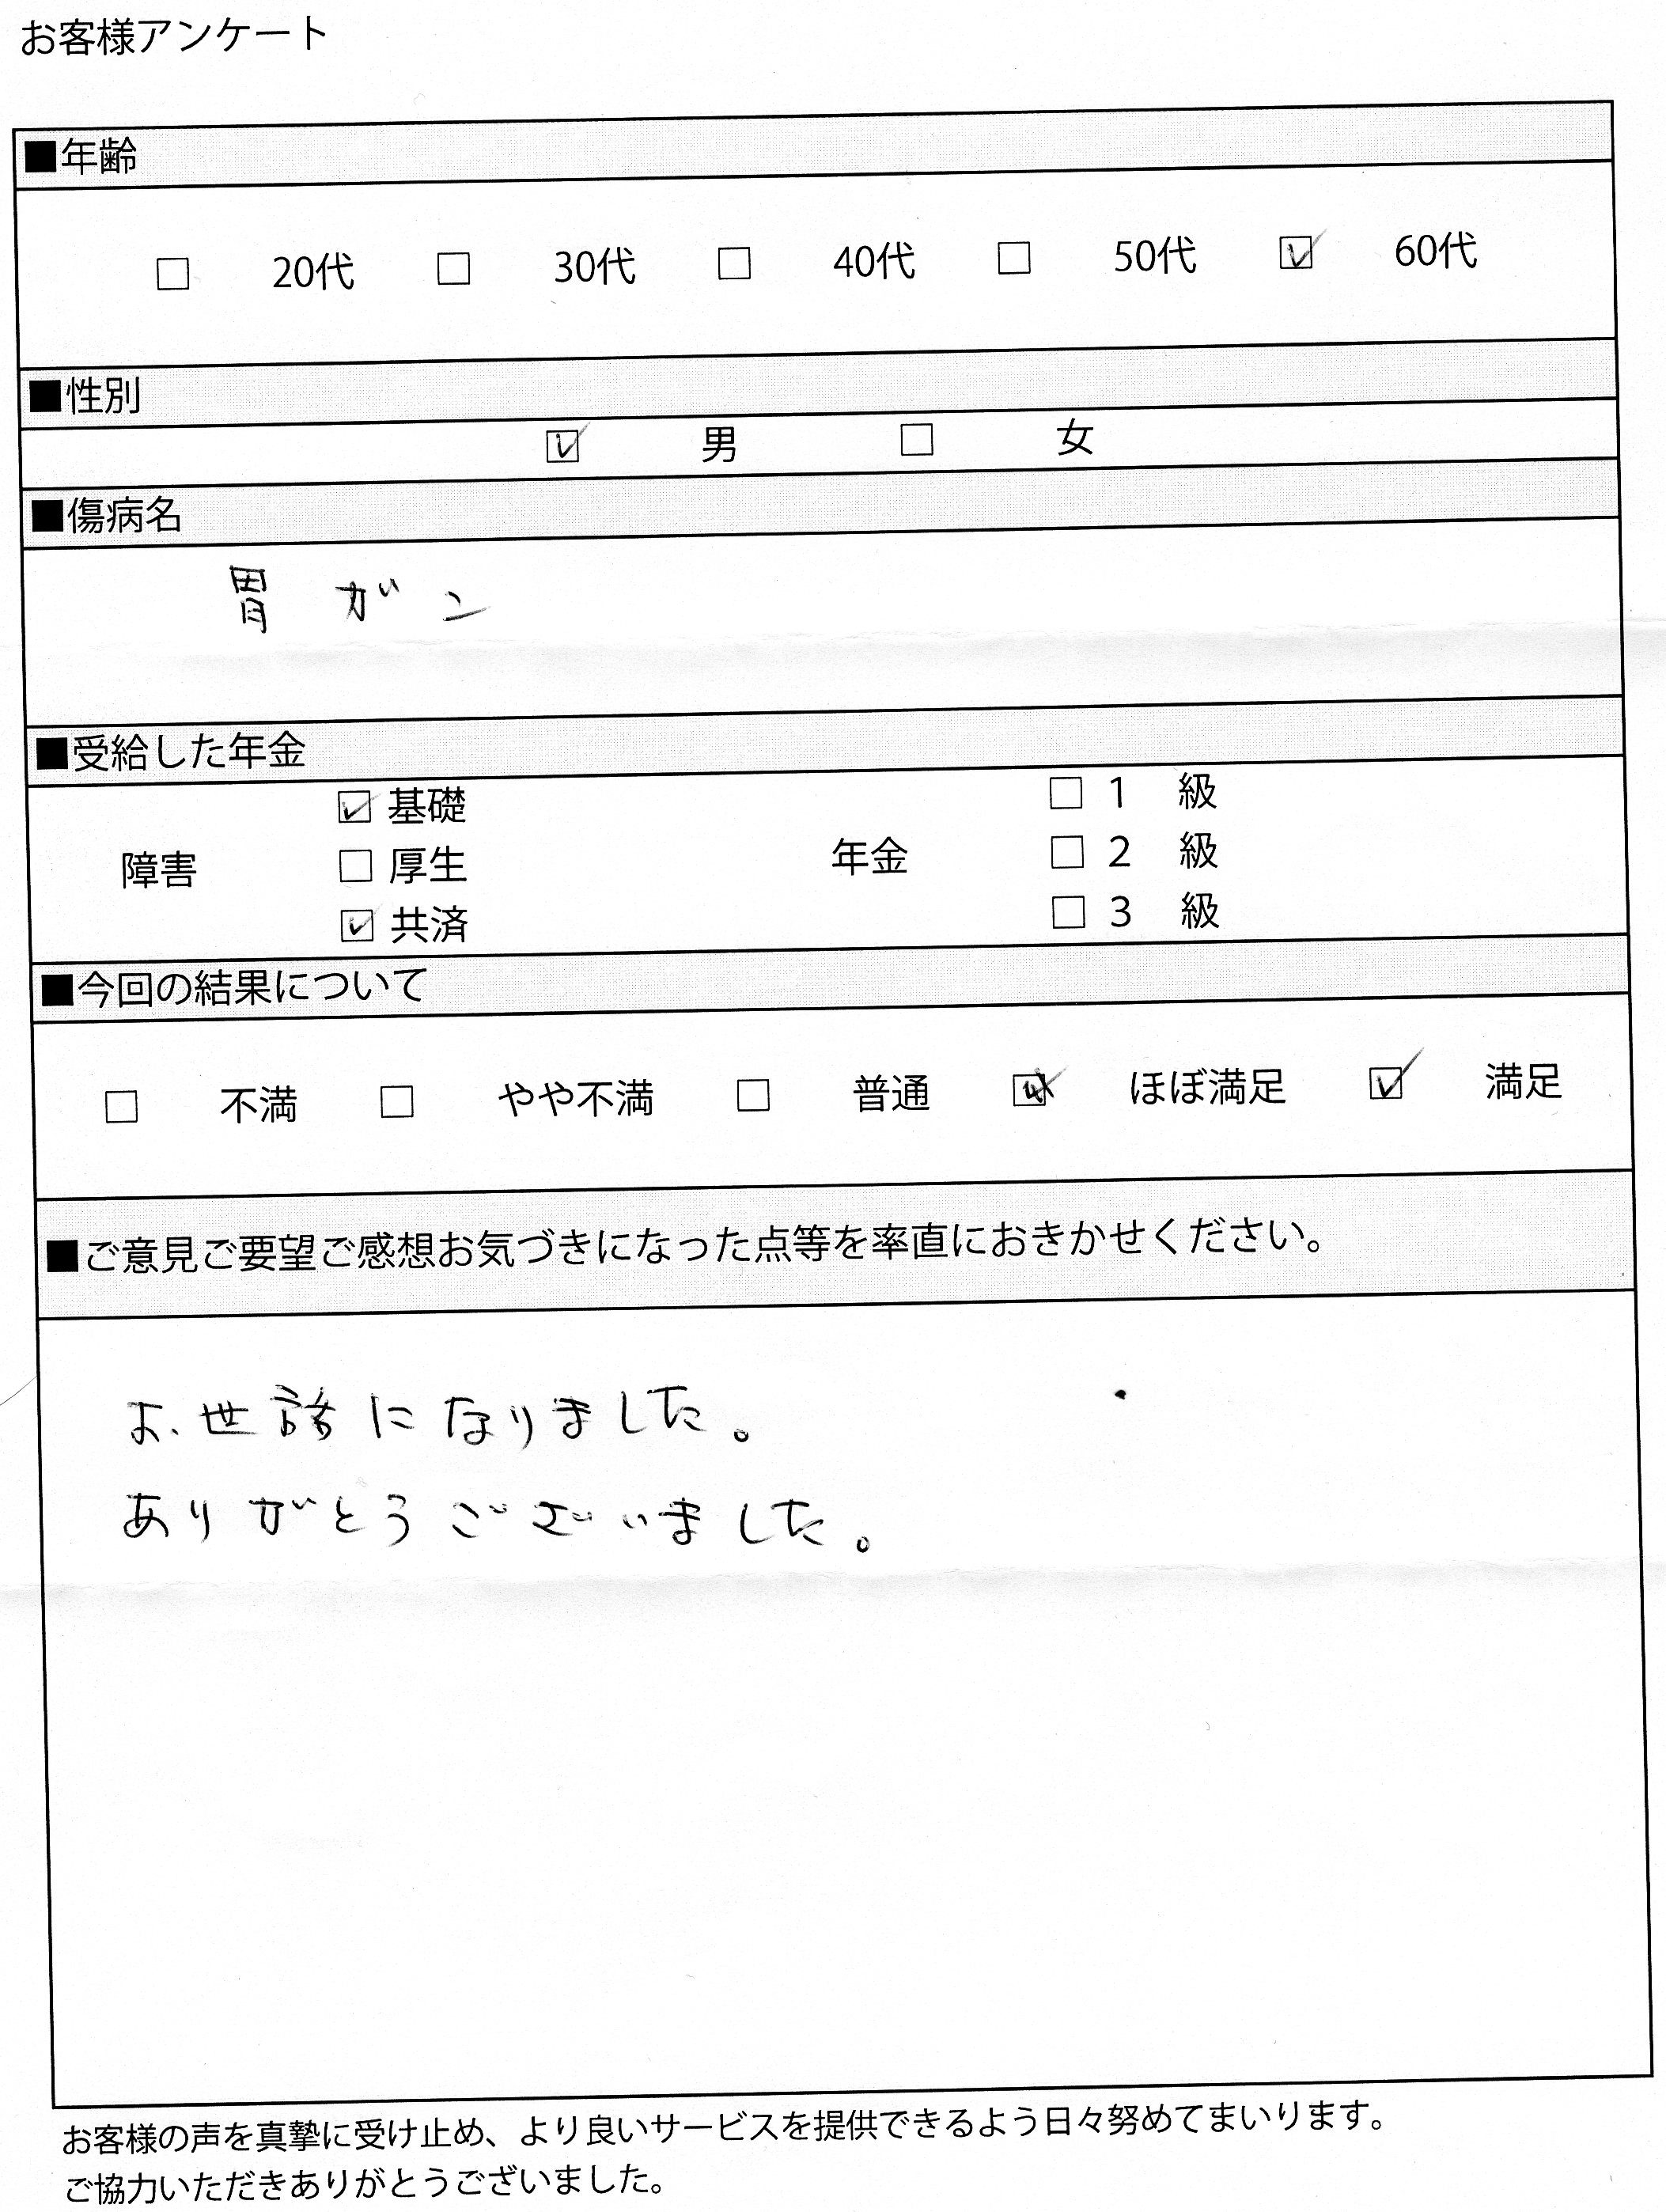 お客様アンケート
■年齢
□ 20代 □ 30代 □ 40代 □ 50代 ☑ 60代
■性別
☑ 男 □ 女
■傷病名
胃ガン
■受給した年金
障害 ☑基礎 □厚生 ☑共済
年金 □1 級 □2 級 □3 級
■今回の結果について
□ 不満 □ やや不満 □ 普通 ☑ ほぼ満足 ☑ 満足
■ご意見ご要望ご感想お気づきになった点等を率直におきかせください。
お世話になりました。
ありがとうございました。
お客様の声を真摯に受け止め、より良いサービスを提供できるよう日々努めてまいります。
ご協力いただきありがとうございました。